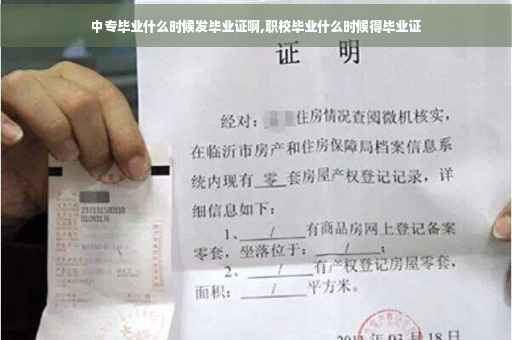 中专毕业什么时候发毕业证啊,职校毕业什么时候得毕业证
证 明
经对: 住房情况查阅微机核实,
在临沂市房产和住房保障局档案信息系
统内现有 零 套房屋产权登记记录,详
细信息如下:
1、 / 有商品房网上登记备案
零套,坐落位于: / ;
2、 / 有产权登记房屋零套,
面积: / 平方米。
03月18日